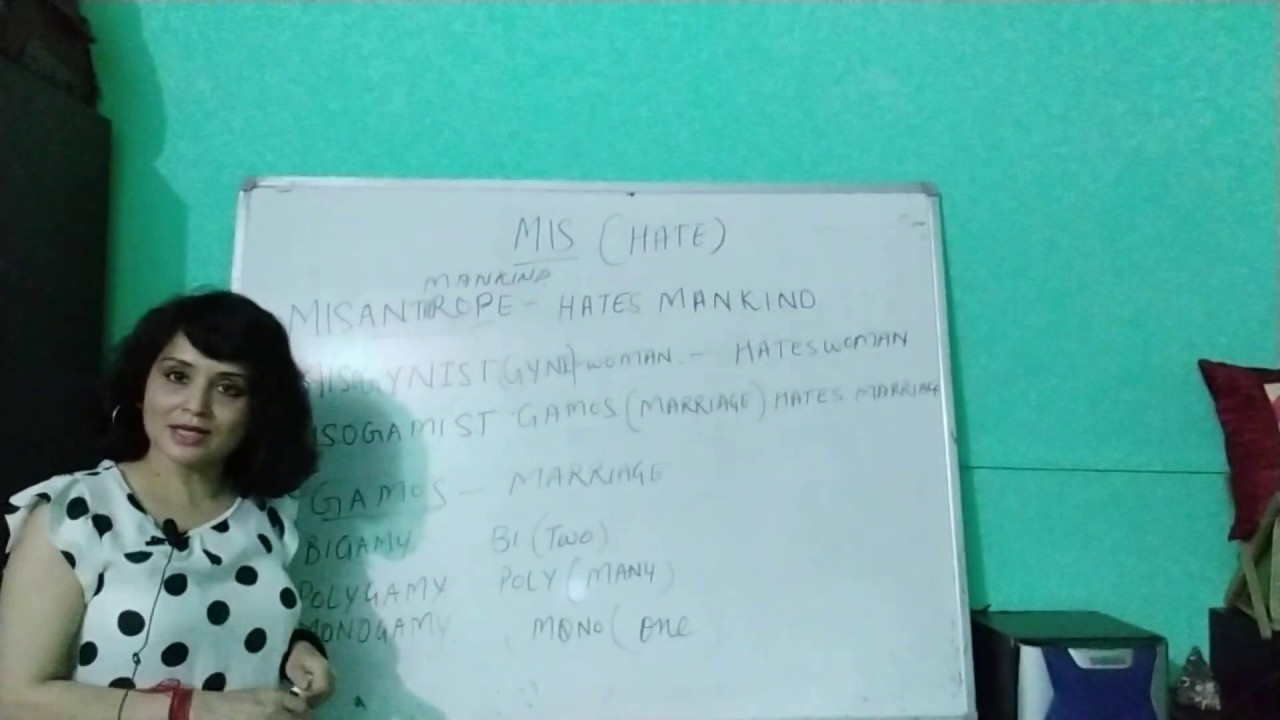 MIS (HATE)
MANKIND
MISANTHROPE - HATES MANKIND
MISOGYNIST (GYNE)-WOMAN - HATES WOMAN
ISOGAMIST GAMOS (MARRIAGE) HATES MARRIAGE
GAMOS - MARRIAGE
BIGAMY BI (TWO)
POLYGAMY POLY (MANY)
MONOGAMY MONO (One